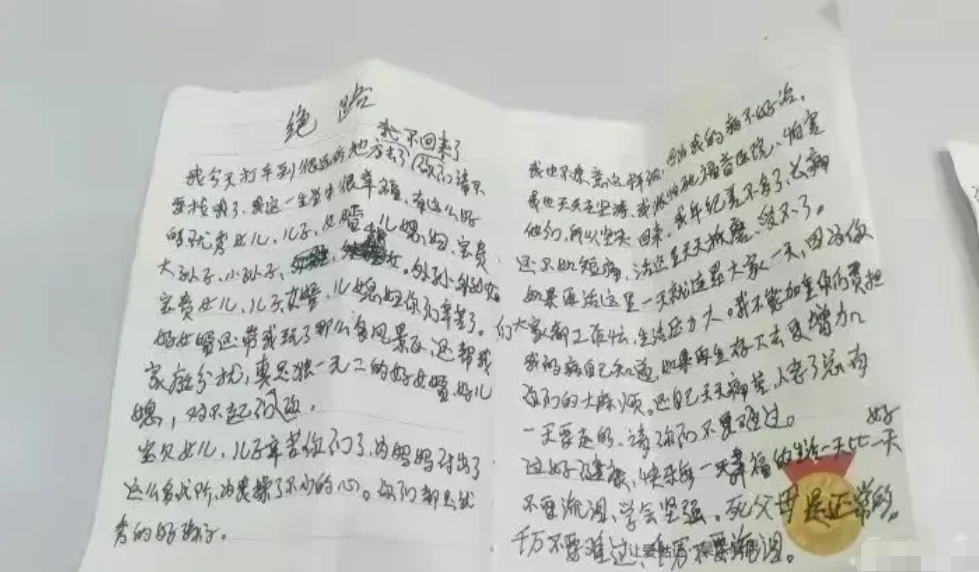 绝路
我不回来了
我今天打车到很远的地方去了你们请不
要找我了，我这一生当中很幸福，有这么好
的优秀女儿，儿子，女婿，儿媳妇，宝贵
大孙子，小孙子，外孙外孙女。
宝贵女儿，儿子女婿，儿媳妇你们辛苦了。
好女婿还带我玩了那么多风景区，还帮我
家庭分忧，真是独一无二的好女婿，好儿
媳，对不起你们。
宝贝女儿，儿子辛苦你们了，为妈妈付出了
这么多，为我操了不小的心。你们都是优
秀的好孩子。
我也不愿意这样，因为我的病不好治，
我也天天在坚持，医院，怕害
他们，所以坚决回来。我年纪差不多了，长痛
还不如短痛，活这里天天折磨，受不了。
如果再活这里一天就连累大家一天，因为你
们大家都工作忙，生活压力大。我不能加重你们负担
我的病自己知道，如果再生存下去更增加
你们的大麻烦。还自己天天痛苦，人老了总有
一天要走的，请你们不要难过。
过好健康、快乐每一天幸福的生活一天比一天好
不要流泪，学会坚强。死父母是正常的。
千万不要难过，不要流泪。